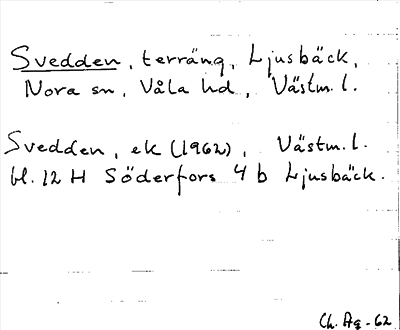 Svedden, terräng, Ljusbäck,
Nora sn, Våla hd, Västm. l.
Svedden, ek (1962), Västm. l.
bl. 12 H Söderfors 4 b Ljusbäck.
Ch. Ag - 62